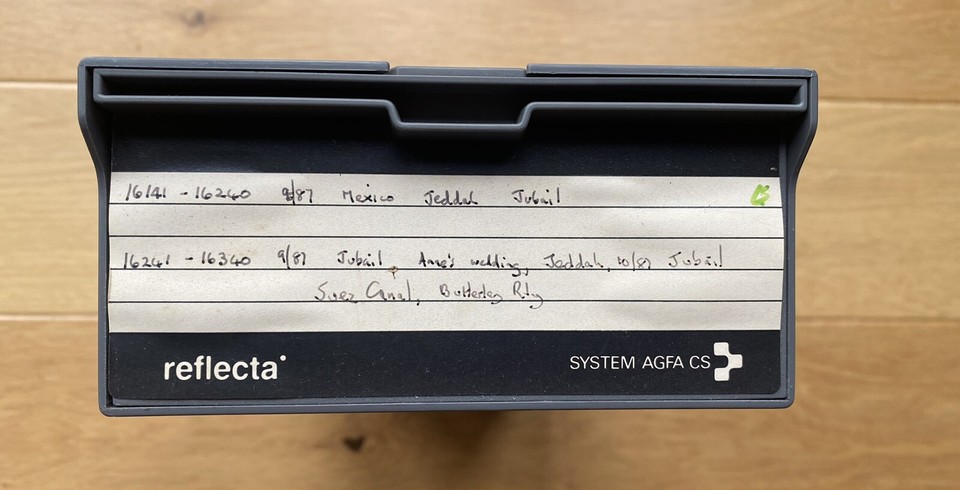 16141 - 16240 9/87 Mexico Jeddah Jubail
16241 - 16340 9/87 Jubail, Anne's wedding, Jeddah, 10/87 Jubail
Suez Canal, Butterley Rly
reflecta
SYSTEM AGFA CS